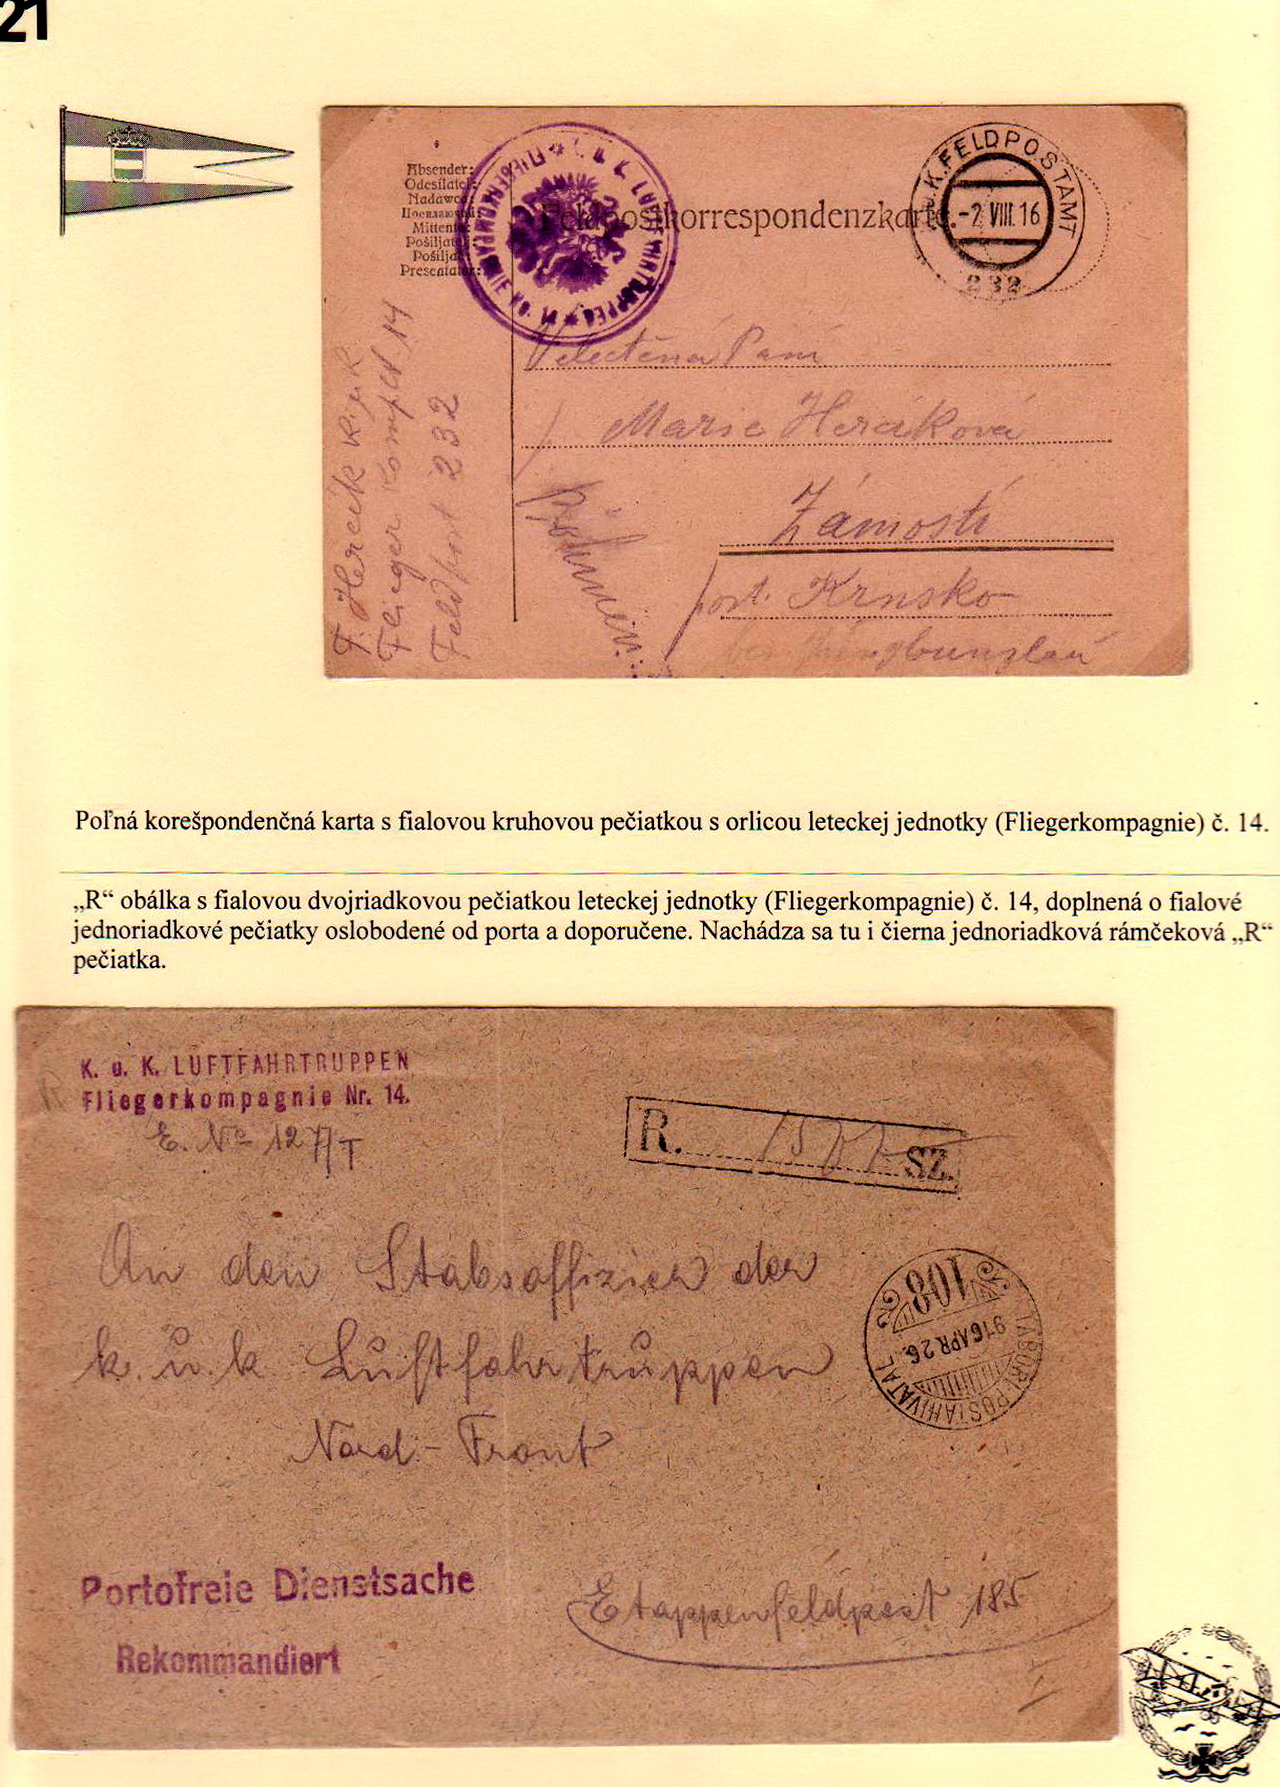 21
Absender:
Odesílatel:
Nadawca:
Mittente:
Pošiljatelj:
Pošiljač:
Presentator:
Feldpostkorrespondenzkarte.
K. u. K. LUFTFAHRTRUPPEN * FLIEGERKOMPAGNIE Nr. 14 *
K.u.K. FELDPOSTAMT
-2 VIII.16
232
F. Herčík
Flieger Komp. 14
Feldpost 232
Velectěná Paní
Marie Herčíková
Zámostí
Böhmen.
post. Krnsko
bei Jungbunzlau
Poľná korešpondenčná karta s fialovou kruhovou pečiatkou s orlicou leteckej jednotky (Fliegerkompagnie) č. 14.
„R“ obálka s fialovou dvojriadkovou pečiatkou leteckej jednotky (Fliegerkompagnie) č. 14, doplnená o fialové
jednoriadkové pečiatky oslobodené od porta a doporučene. Nachádza sa tu i čierna jednoriadková rámčeková „R“
pečiatka.
K. u. K. LUFTFAHRTRUPPEN
Fliegerkompagnie Nr. 14.
E. No 127/T
R. SZ.
An den Stabsoffizier der
k. u. k Luftfahrtruppen
Nord-Front
TÁBORI POSTAHIVATAL
916 APR 26.
108
Portofreie Dienstsache
Rekommandiert
Etappenfeldpost 185